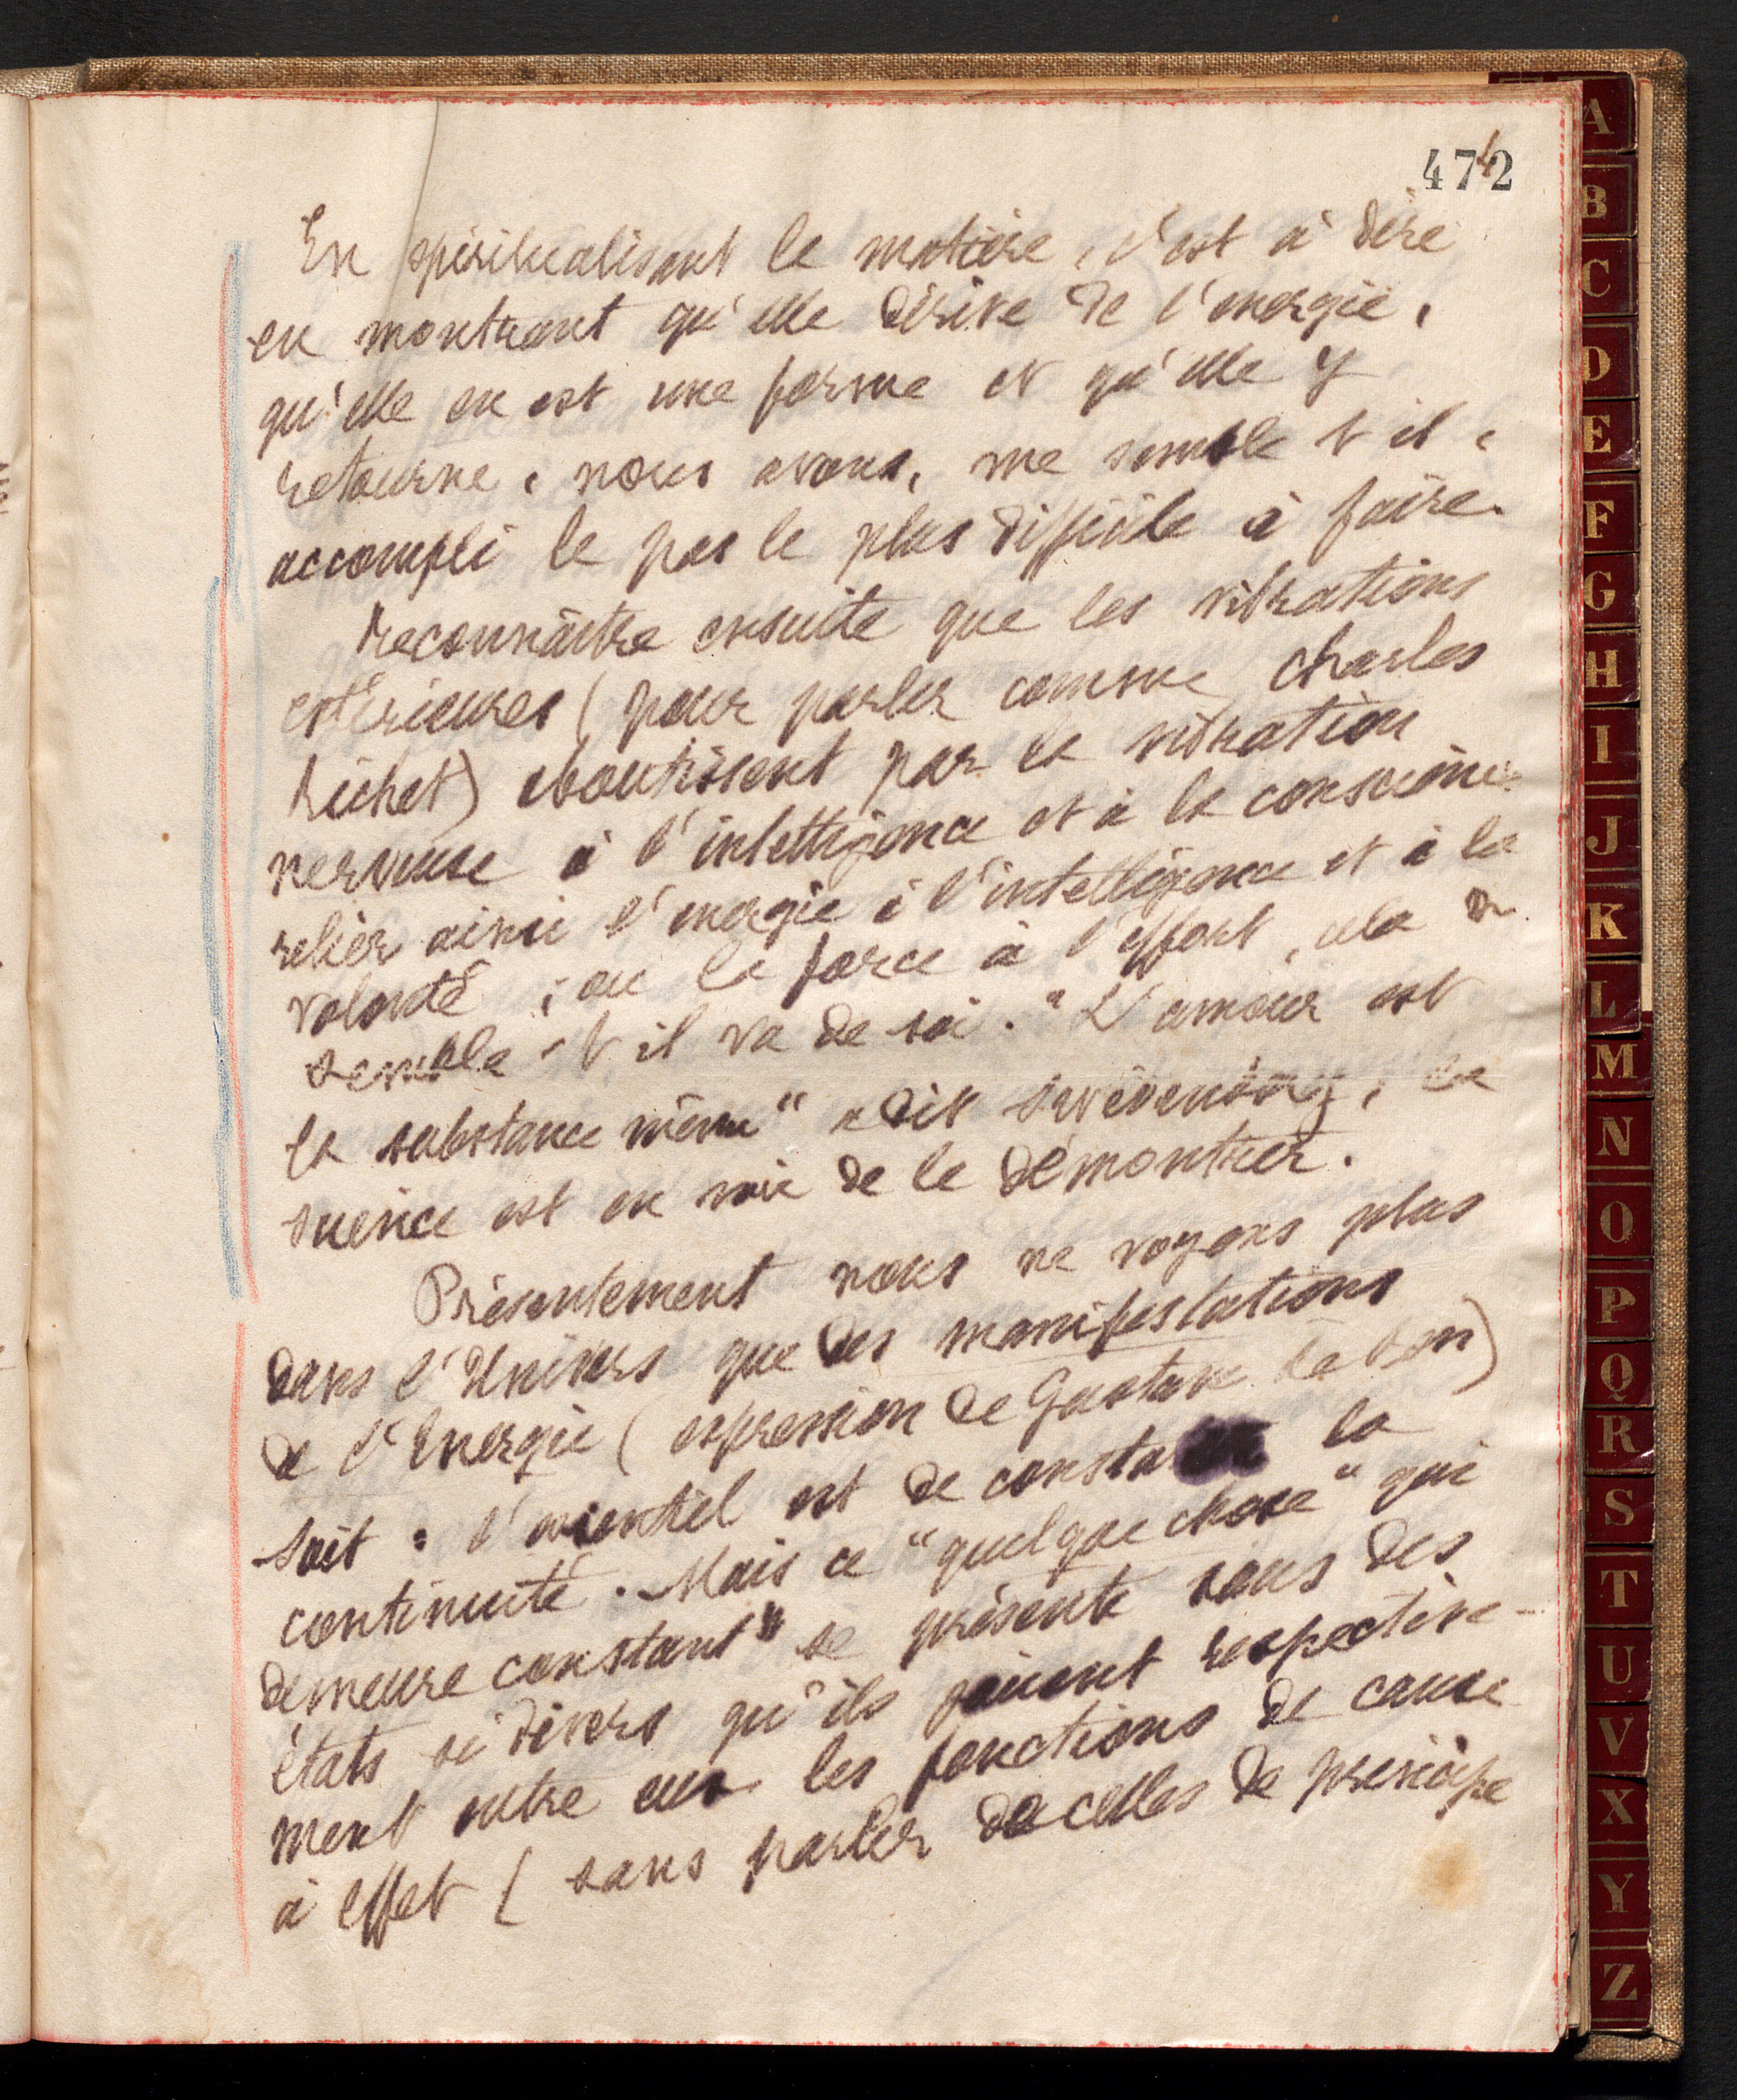 4742
En spiritualisant la matière, c'est à dire
en montrant qu'elle dérive de l'énergie,
qu'elle en est une forme et qu'elle y
retourne, nous avons, me semble t il,
accompli le pas le plus difficile à faire.
Reconnaître ensuite que les vibrations
extérieures (pour parler comme Charles
Richet) aboutissent par la vibration
nerveuse à l'intelligence et à la conscience
relier ainsi l'énergie à l'intelligence et à la
volonté ; ou la force à l'effort, cela
semble-t il va de soi. "L'amour est
la substance même" a dit Swedenborg, la
science est en voie de le démontrer.
Présentement nous ne voyons plus
dans l'Univers que des manifestations
de l'Energie (expression de Gustave Le Bon)
soit : l'essentiel est de constater la
continuité. Mais ce "quelque chose" qui
demeure constant" se présente sous des
états si divers qu'ils jouent respective-
ment entre eux les fonctions de cause
à effet (sans parler de celles de principe
A
B
C
D
E
F
G
H
I
J
K
L
M
N
O
P
Q
R
S
T
U
V
X
Y
Z